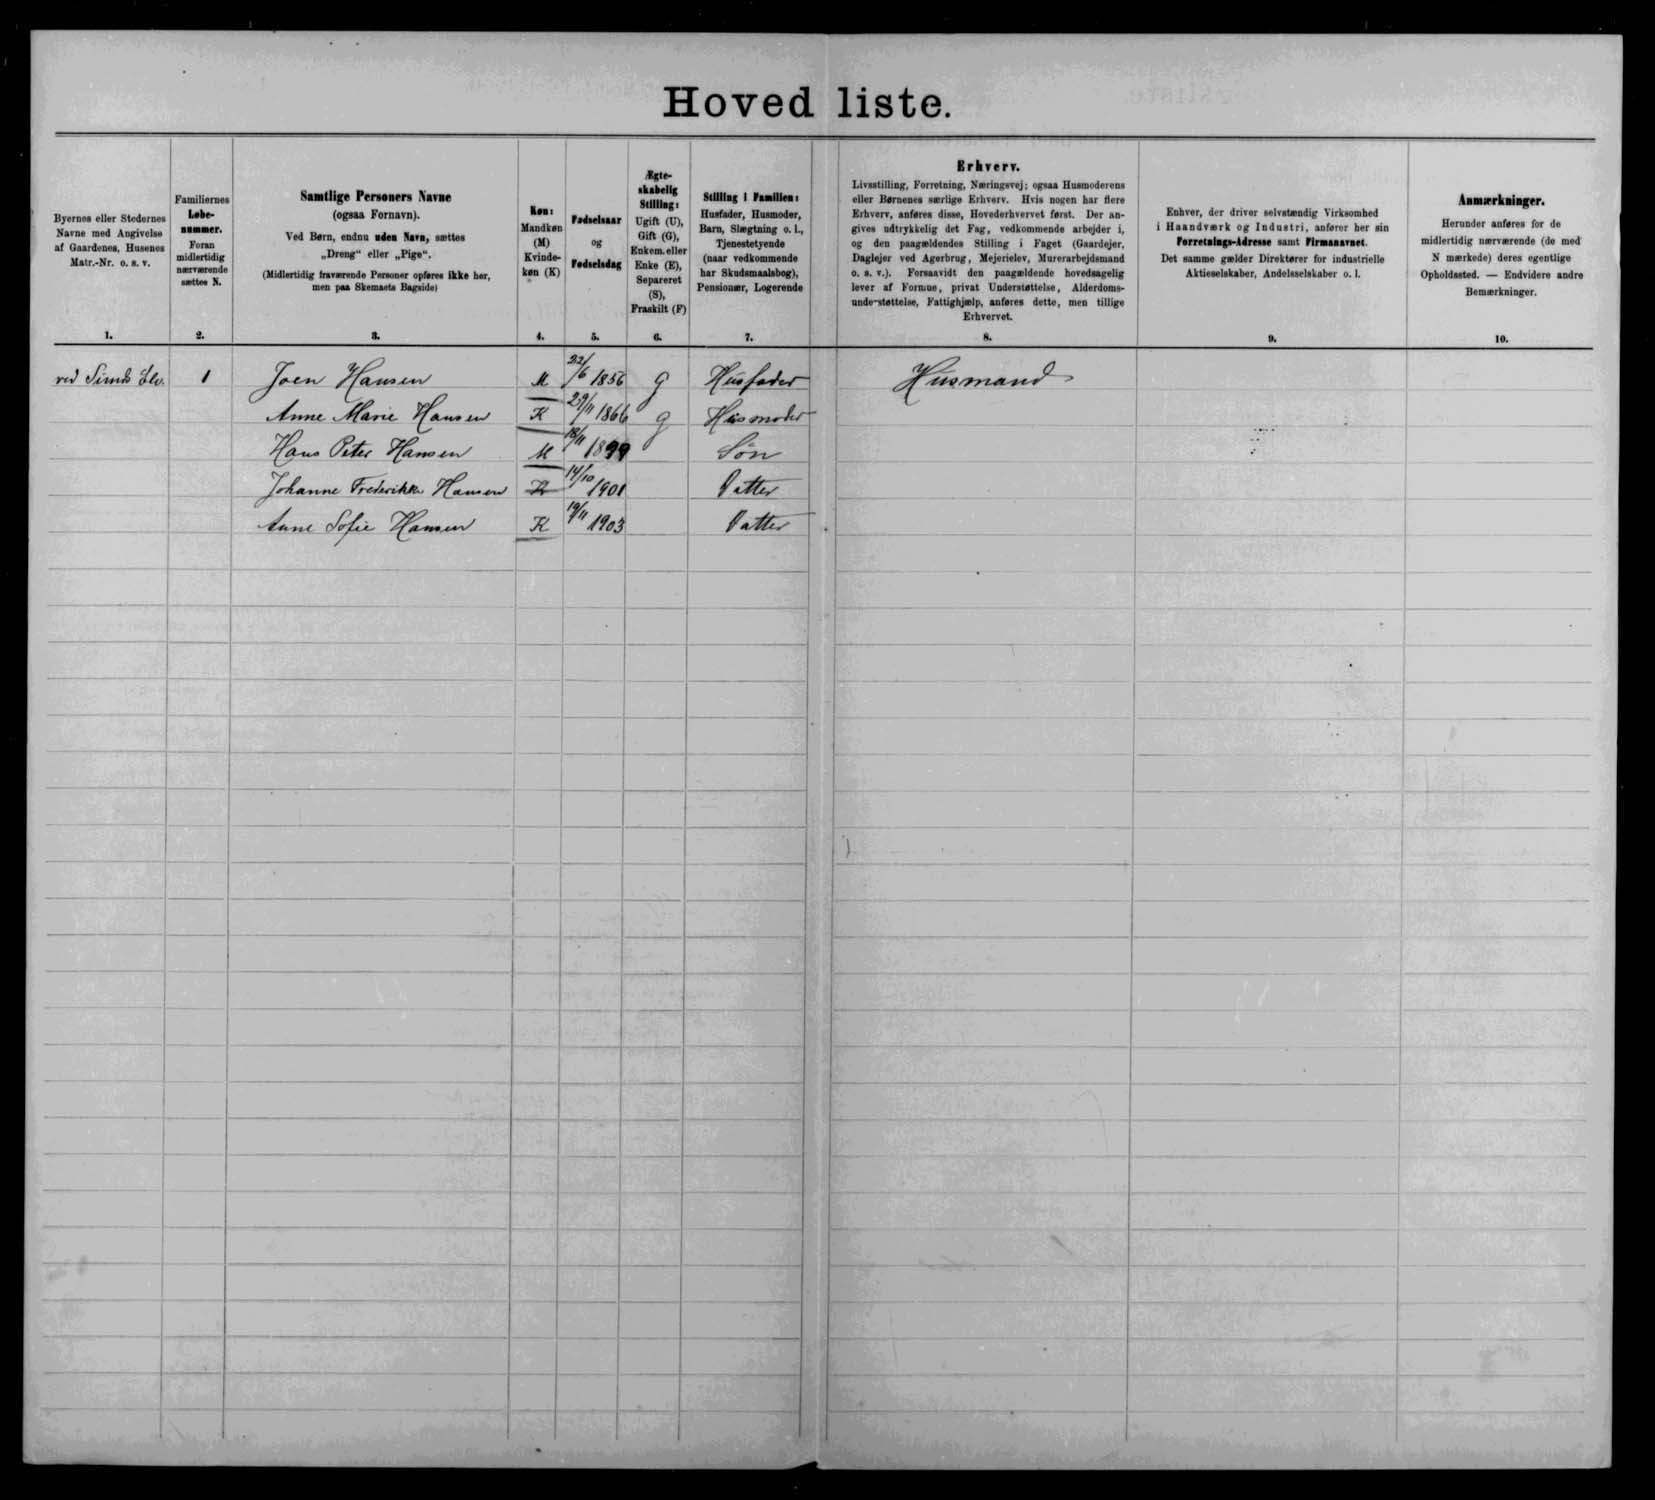 Hoved liste.
Byernes eller Stedernes
Navne med Angivelse
af Gaardenes, Husenes
Matr.-Nr. o. s. v.
1.
Familiernes
Løbe-
nummer.
Foran
midlertidig
nærværende
sættes N.
2.
Samtlige Personers Navne
(ogsaa Fornavn).
Ved Børn, endnu uden Navn, sættes
„Dreng“ eller „Pige“.
(Midlertidig fraværende Personer opføres ikke her,
men paa Skemaets Bagside)
3.
Køn:
Mandkøn
(M)
Kvinde-
køn (K)
4.
Fødselsaar
og
Fødselsdag
5.
Ægte-
skabelig
Stilling:
Ugift (U),
Gift (G),
Enkem. eller
Enke (E),
Separeret
(S),
Fraskilt (F)
6.
Stilling i Familien:
Husfader, Husmoder,
Barn, Slægtning o. l.,
Tjenestetyende
(naar vedkommende
har Skudsmaalsbog),
Pensionær, Logerende
7.
Erhverv.
Livsstilling, Forretning, Næringsvej; ogsaa Husmoderens
eller Børnenes særlige Erhverv. Hvis nogen har flere
Erhverv, anføres disse, Hovederhvervet først. Der an-
gives udtrykkelig det Fag, vedkommende arbejder i,
og den paagældendes Stilling i Faget (Gaardejer,
Daglejer ved Agerbrug, Mejerielev, Murerarbejdsmand
o. s. v.). Forsaavidt den paagældende hovedsagelig
lever af Formue, privat Understøttelse, Alderdoms-
understøttelse, Fattighjælp, anføres dette, men tillige
Erhvervet.
8.
Enhver, der driver selvstændig Virksomhed
i Haandværk og Industri, anfører her sin
Forretnings-Adresse samt Firmanavnet.
Det samme gælder Direktører for industrielle
Aktieselskaber, Andelsselskaber o. l.
9.
Anmærkninger.
Herunder anføres for de
midlertidig nærværende (de med
N mærkede) deres egentlige
Opholdssted. — Endvidere andre
Bemærkninger.
10.
ved 1 Joen Hansen M 22/6 1856 G Husfader Husmand
Anne Marie Hansen K 29/11 1866 G Husmoder
Hans Peter Hansen M 18/11 1899 Søn
Johanne Frederikke Hansen K 14/10 1901 Datter
Anne Sofie Hansen K 19/11 1903 Datter